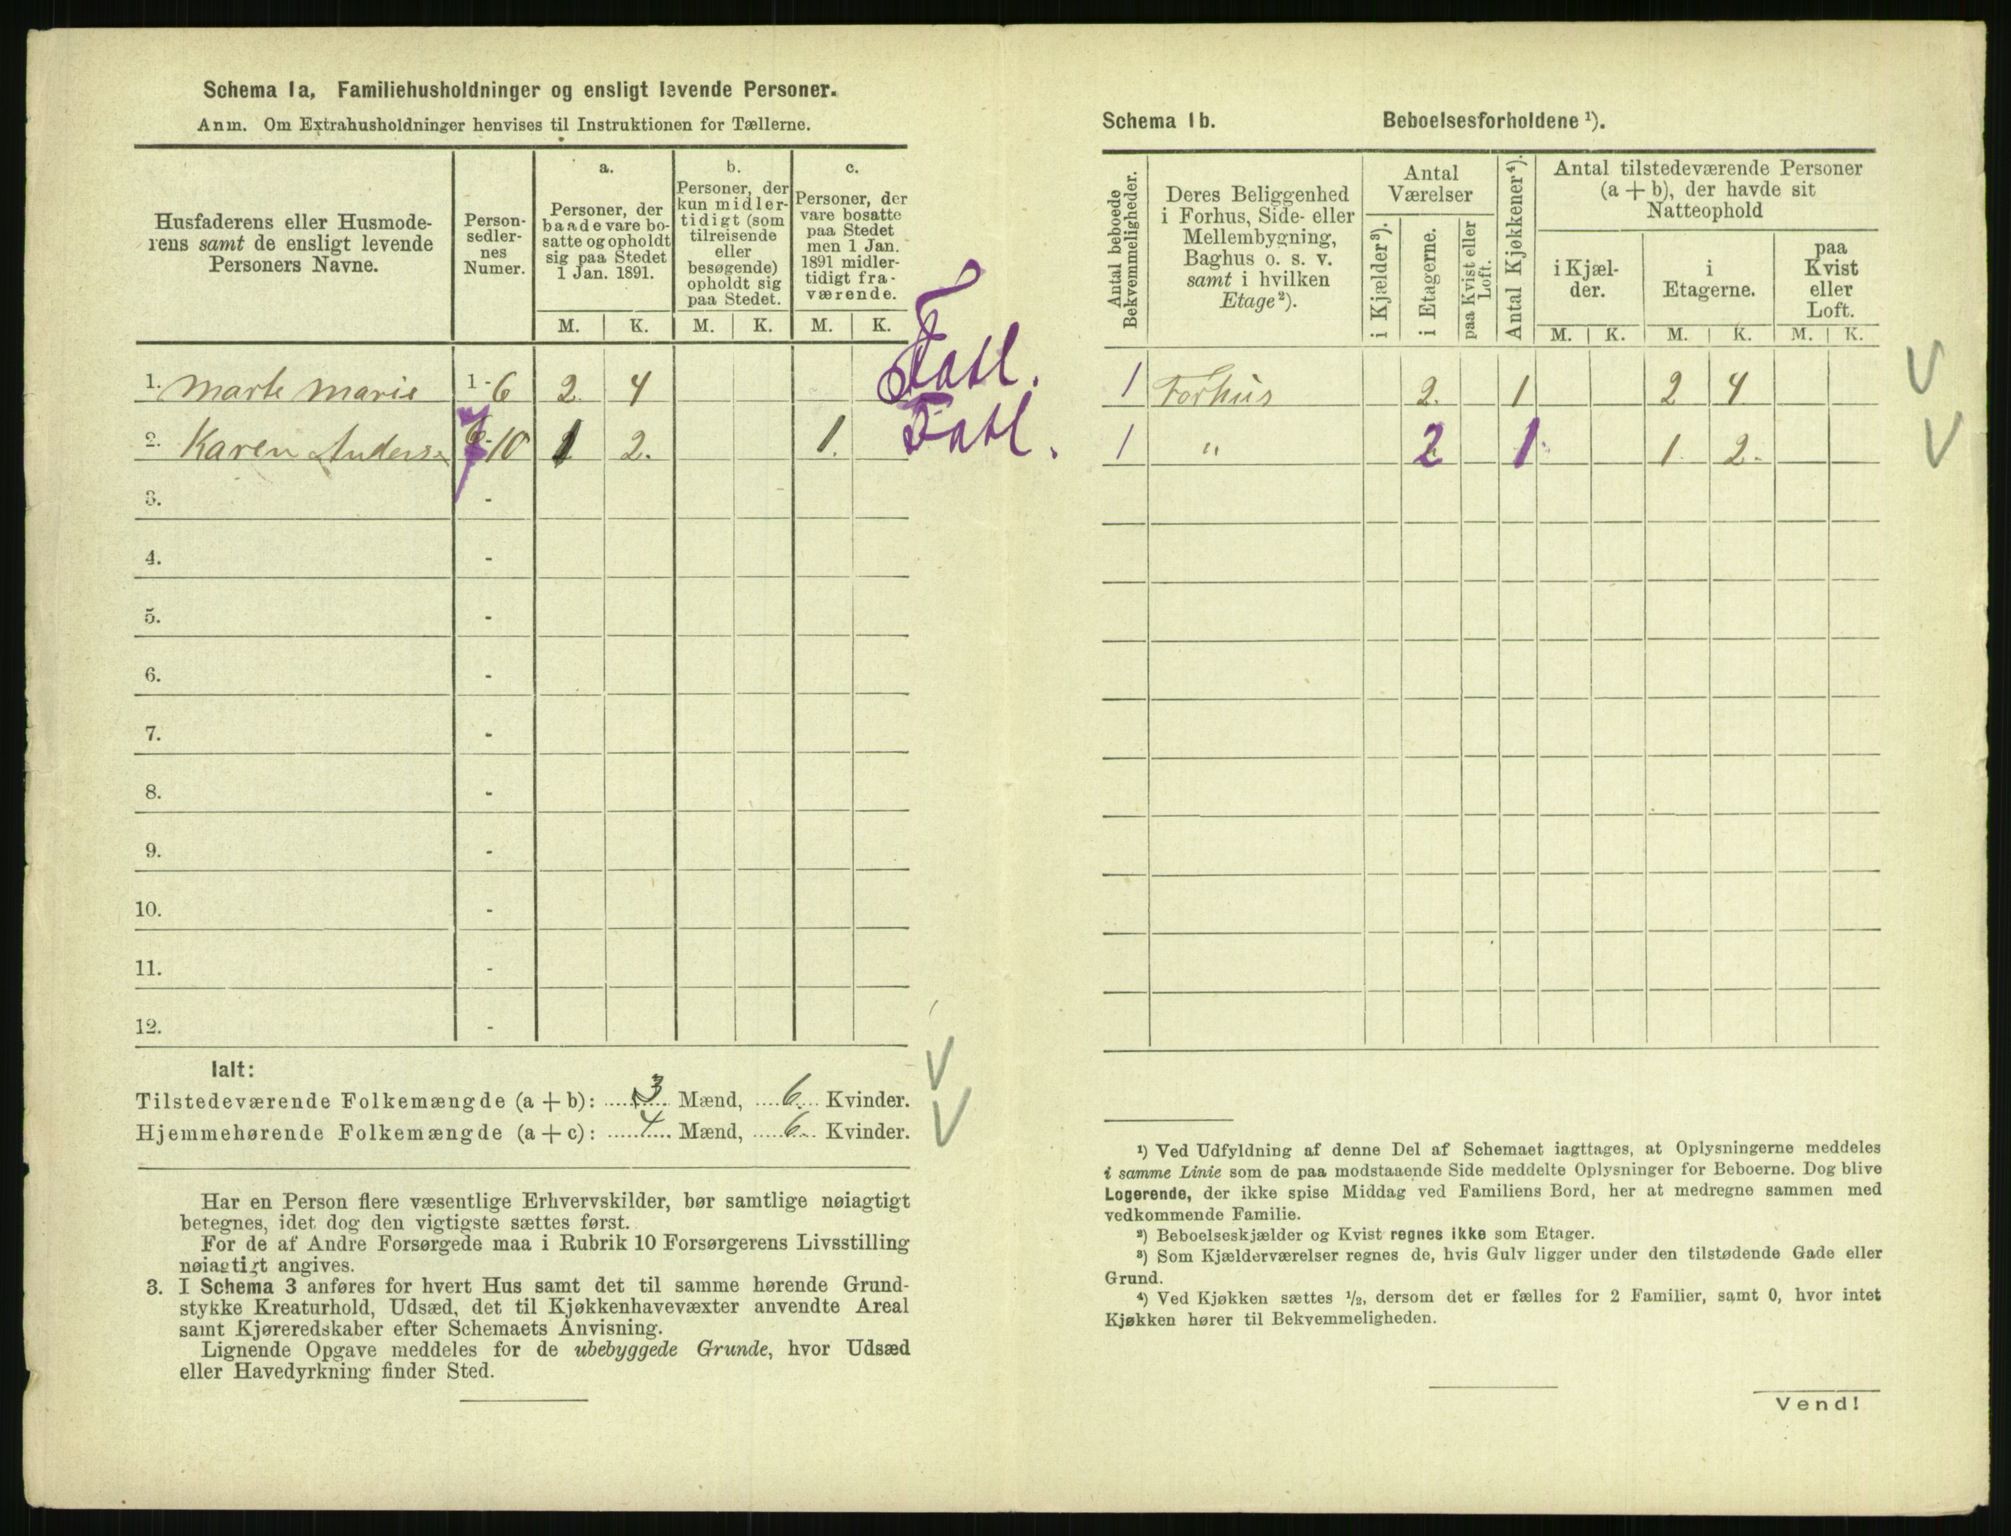 Schema 1a, Familiehusholdninger og ensligt levende Personer.
Anm. Om Extrahusholdninger henvises til Instruktionen for Tællerne.
Husfaderens eller Husmode-
rens samt de ensligt levende
Personers Navne.
Person-
sedler-
nes
Numer.
a.
Personer, der
baade vare bo-
satte og opholdt
sig paa Stedet
1 Jan. 1891.
b.
Personer, der
kun midler-
tidigt (som
tilreisende
eller
besøgende)
opholdt sig
paa Stedet.
c.
Personer, der
vare bosatte
paa Stedet
men 1 Jan.
1891 midler-
tidigt fra-
værende.
M. K. M. K. M. K.
1. Marte Marie 1-6 2. 4 Fatl.
2. Karen Anders 7-10 1 2. 1. Fatl.
3. -
4. -
5. -
6. -
7. -
8. -
9. -
10. -
11. -
12. -
Ialt:
Tilstedeværende Folkemængde (a + b): 3 Mænd, 6 Kvinder.
Hjemmehørende Folkemængde (a + c): 4 Mænd, 6 Kvinder.
Har en Person flere væsentlige Erhvervskilder, bør samtlige nøiagtigt
betegnes, idet dog den vigtigste sættes først.
For de af Andre Forsørgede maa i Rubrik 10 Forsørgerens Livsstilling
nøiagtigt angives.
3. I Schema 3 anføres for hvert Hus samt det til samme hørende Grund-
stykke Kreaturhold, Udsæd, det til Kjøkkenhavevæxter anvendte Areal
samt Kjøreredskaber efter Schemaets Anvisning.
Lignende Opgave meddeles for de ubebyggede Grunde, hvor Udsæd
eller Havedyrkning finder Sted.
Schema 1b. Beboelsesforholdene ¹).
Antal beboede
Bekvemmeligheder.
Deres Beliggenhed
i Forhus, Side- eller
Mellembygning,
Baghus o. s. v.
samt i hvilken
Etage²).
Antal
Værelser
i Kjælder³).
i Etagerne.
paa Kvist eller
Loft.
Antal Kjøkkener⁴).
Antal tilstedeværende Personer
(a + b), der havde sit
Natteophold
i Kjæl-
der.
i
Etagerne.
paa
Kvist
eller
Loft.
M. K. M. K. M. K.
1 Forhus 2. 1 2 4 V
1 " 2 1 1. 2. V
¹) Ved Udfyldning af denne Del af Schemaet iagttages, at Oplysningerne meddeles
i samme Linie som de paa modstaaende Side meddelte Oplysninger for Beboerne. Dog blive
Logerende, der ikke spise Middag ved Familiens Bord, her at medregne sammen med
vedkommende Familie.
²) Beboelseskjælder og Kvist regnes ikke som Etager.
³) Som Kjælderværelser regnes de, hvis Gulv ligger under den tilstødende Gade eller
Grund.
⁴) Ved Kjøkken sættes ½, dersom det er fælles for 2 Familier, samt 0, hvor intet
Kjøkken hører til Bekvemmeligheden.
Vend!